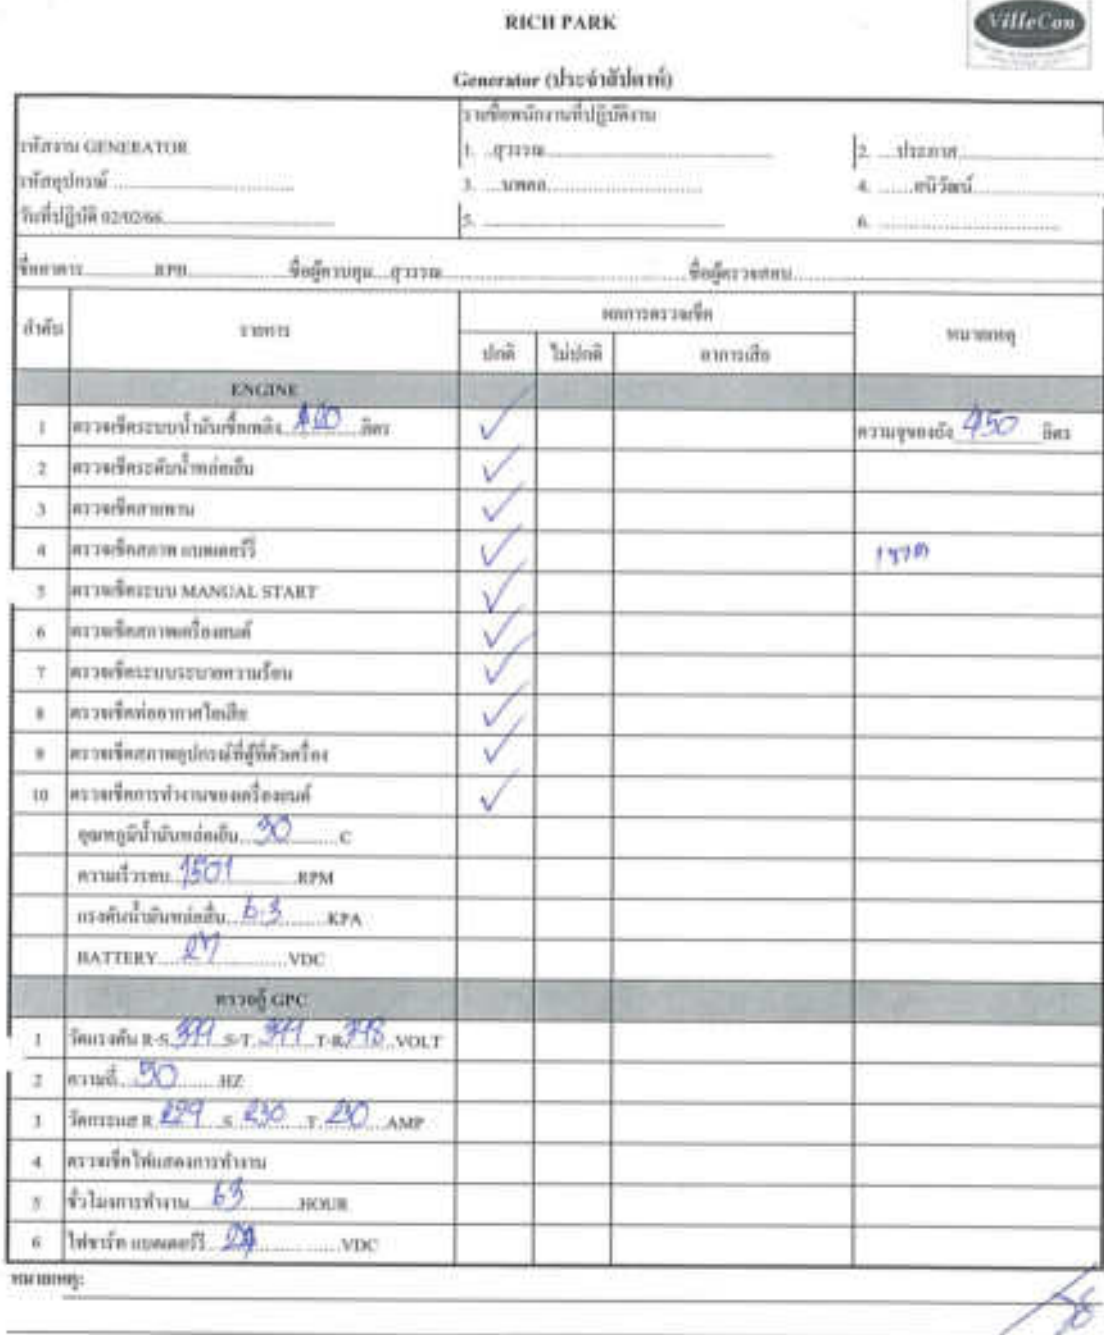 RICH PARK
VilleCon
Generator (ประจำสัปดาห์)
รายชื่อพนักงานที่ปฏิบัติงาน
รหัสงาน GENERATOR 1. สุวรรณ 2. ประภาส
รหัสอุปกรณ์ 3. นพดล 4. อนิวัฒน์
วันที่ปฏิบัติ 02/02/66 5. 6.
ชื่ออาคาร RPB ชื่อผู้ควบคุม สุวรรณ ชื่อผู้ตรวจสอบ
ลำดับ รายการ ผลการตรวจเช็ค หมายเหตุ
ปกติ ไม่ปกติ อาการเสีย
ENGINE
1 ตรวจเช็คระบบน้ำมันเชื้อเพลิง ลิตร ความจุของถัง 450 ลิตร
2 ตรวจเช็คระดับน้ำหล่อเย็น
3 ตรวจเช็คสายพาน
4 ตรวจเช็คสภาพ แบตเตอร์รี่
5 ตรวจเช็คระบบ MANUAL START
6 ตรวจเช็คสภาพเครื่องยนต์
7 ตรวจเช็คระบบระบายความร้อน
8 ตรวจเช็คท่ออากาศไอเสีย
9 ตรวจเช็คสภาพอุปกรณ์ที่ตู้ที่ตัวเครื่อง
10 ตรวจเช็คการทำงานของเครื่องยนต์
อุณหภูมิน้ำมันหล่อเย็น 30 C
ความเร็วรอบ 1501 RPM
แรงดันน้ำมันหล่อลื่น 6.3 KPA
BATTERY 27 VDC
ตรวจตู้ GPC
1 วัดแรงดัน R-S 399 S-T 399 T-R 398 VOLT
2 ความถี่ 50 HZ
3 วัดกระแส R 229 S 230 T 230 AMP
4 ตรวจเช็คไฟแสดงการทำงาน
5 ชั่วโมงการทำงาน 63 HOUR
6 ไฟชาร์ท แบตเตอร์รี่ VDC
หมายเหตุ: